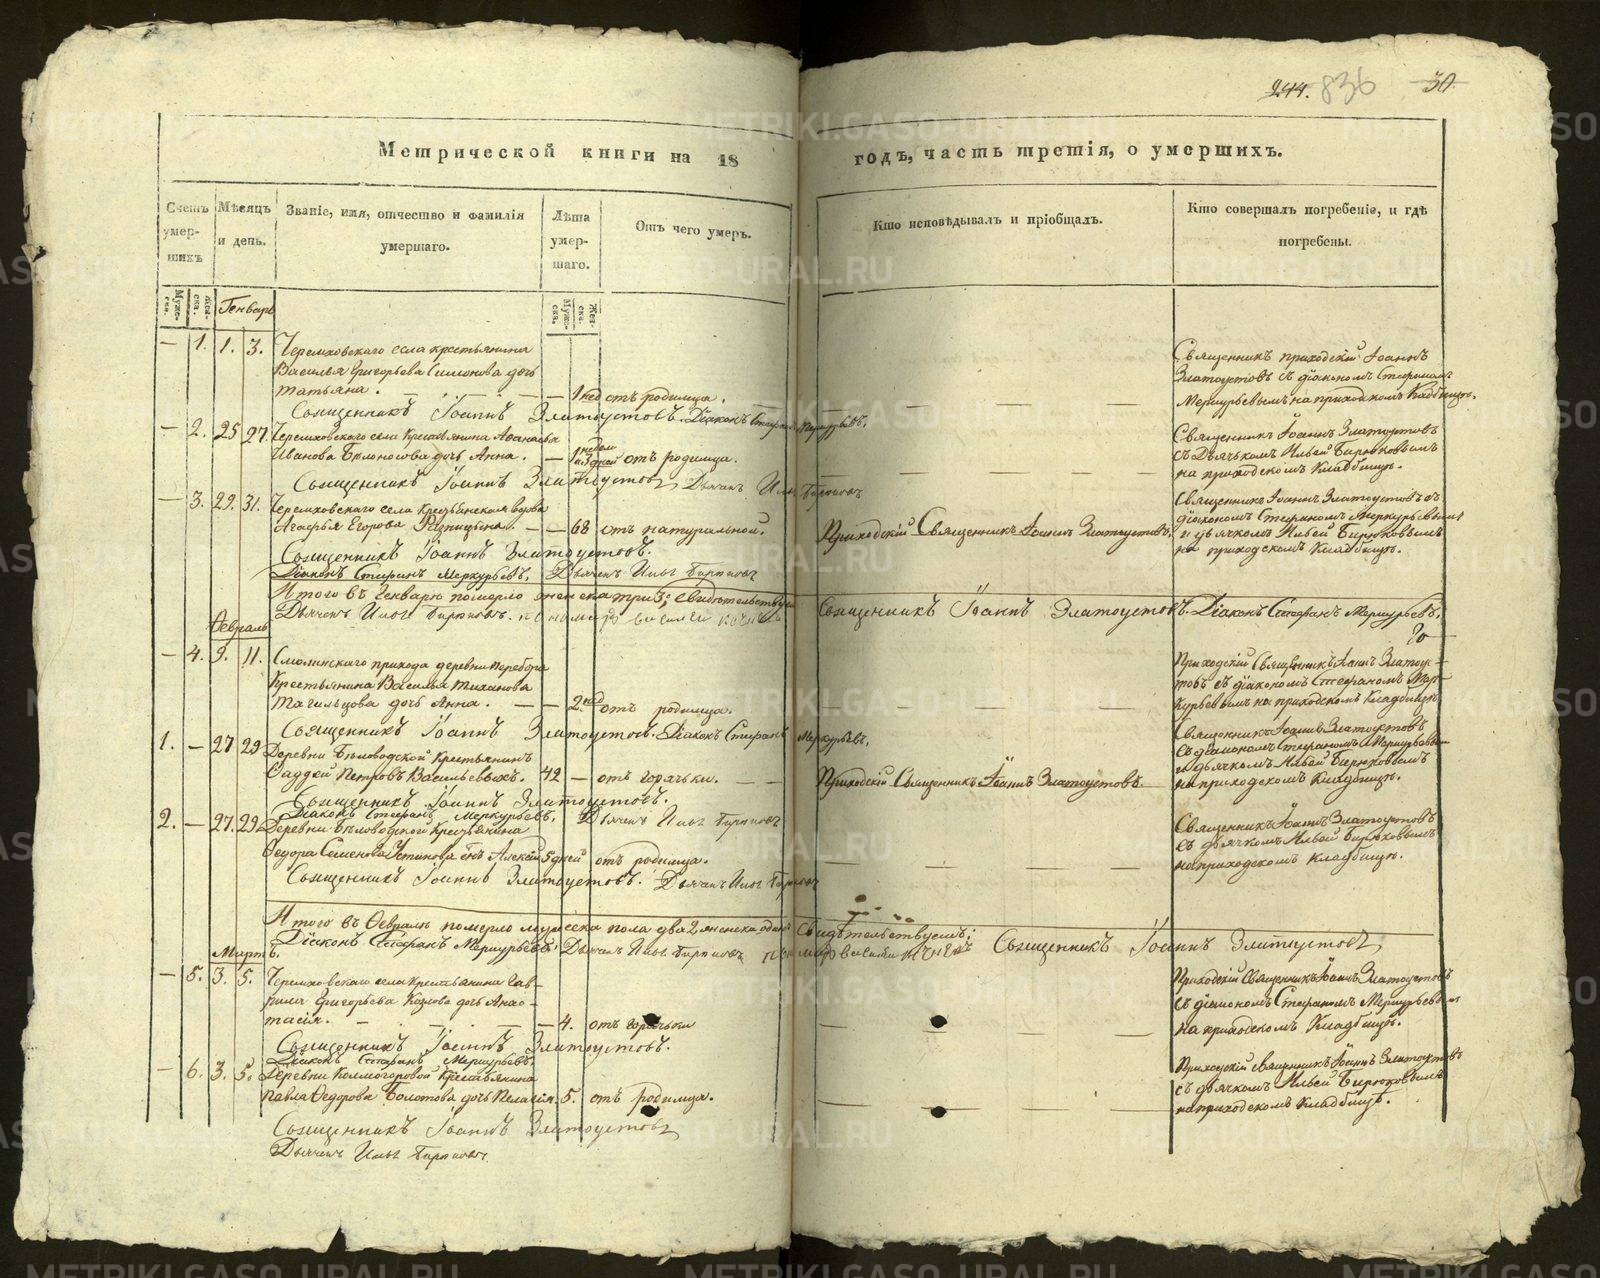 244. 836 30
Метрической книги на 18 годъ, часть третія, о умершихъ.
Счетъ умер-шихъ
Мѣсяцъ и день.
Званіе, имя, отчество и фамилія умершаго.
Лѣта умер-шаго.
Отъ чего умеръ.
Кто исповѣдывалъ и пріобщалъ.
Кто совершалъ погребеніе, и гдѣ погребены.
Муже-ска.
Жен-ска.
Муже-ска.
Жен-ска.
Генварь
— 1. 1. 3. Черемховскаго села крестьянина
Василья Григорьева Симонова дочь
татьяна. — 1 нед отъ родимца.
Священникъ приходскій Іоаннъ
Златоустовъ съ діакономъ Стефаномъ
Меркурьевымъ на приходскомъ Кладбищѣ.
Священникъ Іоаннъ Златоустовъ. Діаконъ Стефанъ Меркурьевъ.
— 2. 25 27. Черемховскаго села Крестьянина Афанасья
Иванова Бѣлоносова дочь Анна. — 1 недѣл и 3 дней отъ родимца.
Священникъ Іоаннъ Златоустовъ
съ Дьячкомъ Ильей Бирюковымъ
на приходскомъ Кладбищѣ.
Священникъ Іоаннъ Златоустовъ Дьячекъ Илья Бирюковъ
— 3. 29. 31. Черемховскаго села Крестьянская вдова
Агафья Егорова — — 68 отъ натуральной.
Приходскій Священникъ Іоаннъ Златоустовъ.
Священникъ Іоаннъ Златоустовъ съ
діакономъ Стефаномъ Меркурьевымъ
и дьячкомъ Ильей Бирюковымъ
на приходскомъ Кладбищѣ.
Священникъ Іоаннъ Златоустовъ.
Діаконъ Стефанъ Меркурьевъ. Дьячекъ Илья Бирюковъ
Итого въ Генварѣ померло женска три 3; свидѣтельствуемъ
Священникъ Іоаннъ Златоустовъ. Діаконъ Стефанъ Меркурьевъ.
Дьячекъ Илья Бирюковъ.
Февраль
— 4. 9. 11. Смолинскаго прихода деревни Перебора
Крестьянина Василья Тиханова
Тагильцова дочь Анна. — — 2. нед отъ родимца.
Приходскій Священникъ Іоаннъ Златоус-
товъ съ діакономъ Стефаномъ Мер-
курьевымъ на приходскомъ Кладбищѣ
Священникъ Іоаннъ Златоустовъ. Діаконъ Стефанъ Меркурьевъ.
1. — 27 29 Деревни Бѣловодской Крестьянинъ
Фаддей Петровъ Васильевыхъ. 42 — отъ горячьки. — —
Приходскій Священникъ Іоаннъ Златоустовъ.
Священникъ Іоаннъ Златоустовъ
съ діакономъ Стефаномъ Меркурьевымъ
и дьячкомъ Ильей Бирюковымъ
на приходскомъ Кладбищѣ.
Священникъ Іоаннъ Златоустовъ.
Діаконъ Стефанъ Меркурьевъ. Дьячекъ Илья Бирюковъ
2. — 27. 29. Деревни Бѣловодской Крестьянина
Федора Семенова Устинова сынъ Алексѣй 5 дней отъ родимца.
Священникъ Іоаннъ Златоустовъ
съ дьячкомъ Ильей Бирюковымъ
на приходскомъ кладбищѣ.
Священникъ Іоаннъ Златоустовъ. Дьячекъ Илья Бирюковъ
Итого въ Февралѣ померло мужеска пола два 2 женска одинъ Свидѣтельствуемъ;
Діаконъ Стефанъ Меркурьевъ. Дьячекъ Илья Бирюковъ Священникъ Іоаннъ Златоустовъ
Мартъ.
— 5. 3. 5. Черемховскаго села Крестьянина Гав-
рила Григорьева Козлова дочь Анас-
тасія. — 4. отъ горячьки
Приходскій Священникъ Іоаннъ Златоустовъ
съ діакономъ Стефаномъ Меркурьевымъ
на приходскомъ Кладбищѣ.
Священникъ Іоаннъ Златоустовъ.
Діаконъ Стефанъ Меркурьевъ.
— 6. 3. 5. Деревни Колмогоровой Крестьянина
Павла Федорова Болотова дочь Пелагія. 5. отъ родимца.
Приходскій священникъ Іоаннъ Златоустовъ
съ дьячкомъ Ильей Бирюковымъ
на приходскомъ кладбищѣ.
Священникъ Іоаннъ Златоустовъ
Дьячекъ Илья Бирюковъ
METRIKI.GASO-URAL.RU